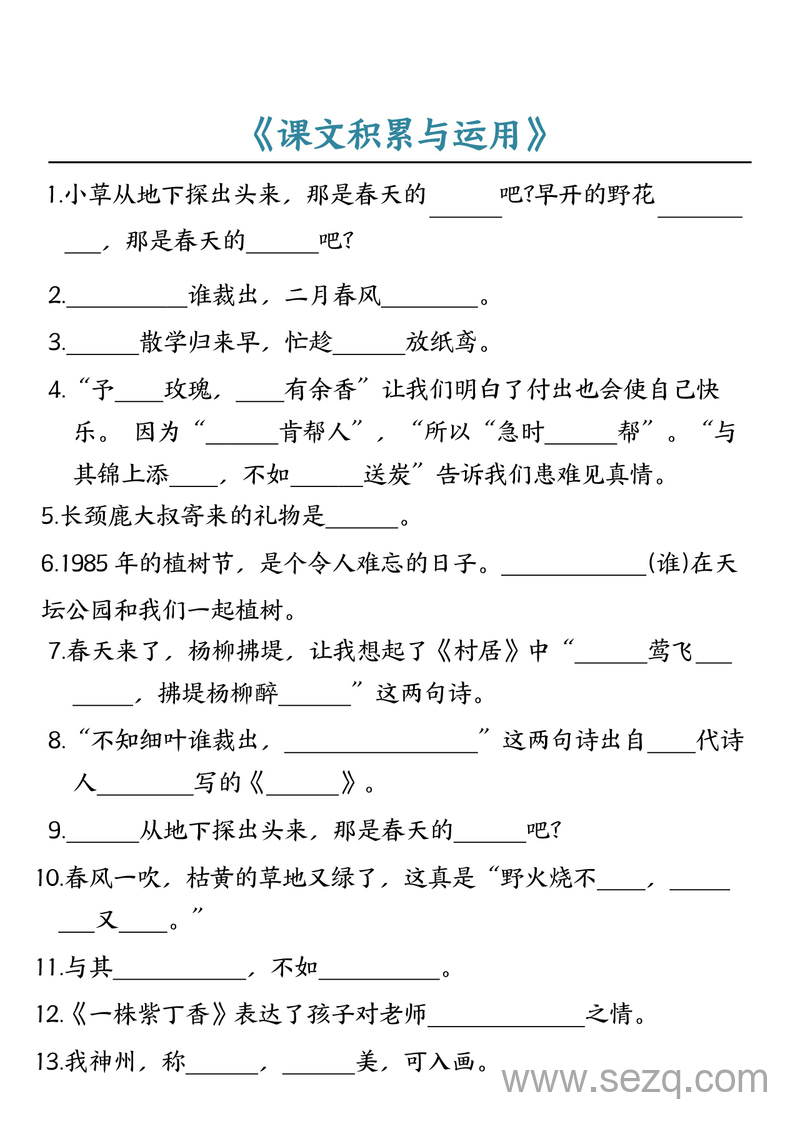 《课文积累与运用》
1.小草从地下探出头来，那是春天的______吧?早开的野花_______
___，那是春天的______吧?
2.__________谁裁出，二月春风________。
3.______散学归来早，忙趁______放纸鸢。
4.“予____玫瑰，____有余香”让我们明白了付出也会使自己快
乐。 因为“______肯帮人”，“所以“急时______帮”。“与
其锦上添____，不如______送炭”告诉我们患难见真情。
5.长颈鹿大叔寄来的礼物是______。
6.1985 年的植树节，是个令人难忘的日子。____________(谁)在天
坛公园和我们一起植树。
7.春天来了，杨柳拂堤，让我想起了《村居》中“______莺飞___
_____，拂堤杨柳醉______”这两句诗。
8.“不知细叶谁裁出，________________”这两句诗出自____代诗
人________写的《______》。
9.______从地下探出头来，那是春天的______吧?
10.春风一吹，枯黄的草地又绿了，这真是“野火烧不____，_____
___又____。”
11.与其___________，不如__________。
12.《一株紫丁香》表达了孩子对老师_____________之情。
13.我神州，称______，______美，可入画。
www.sezq.com